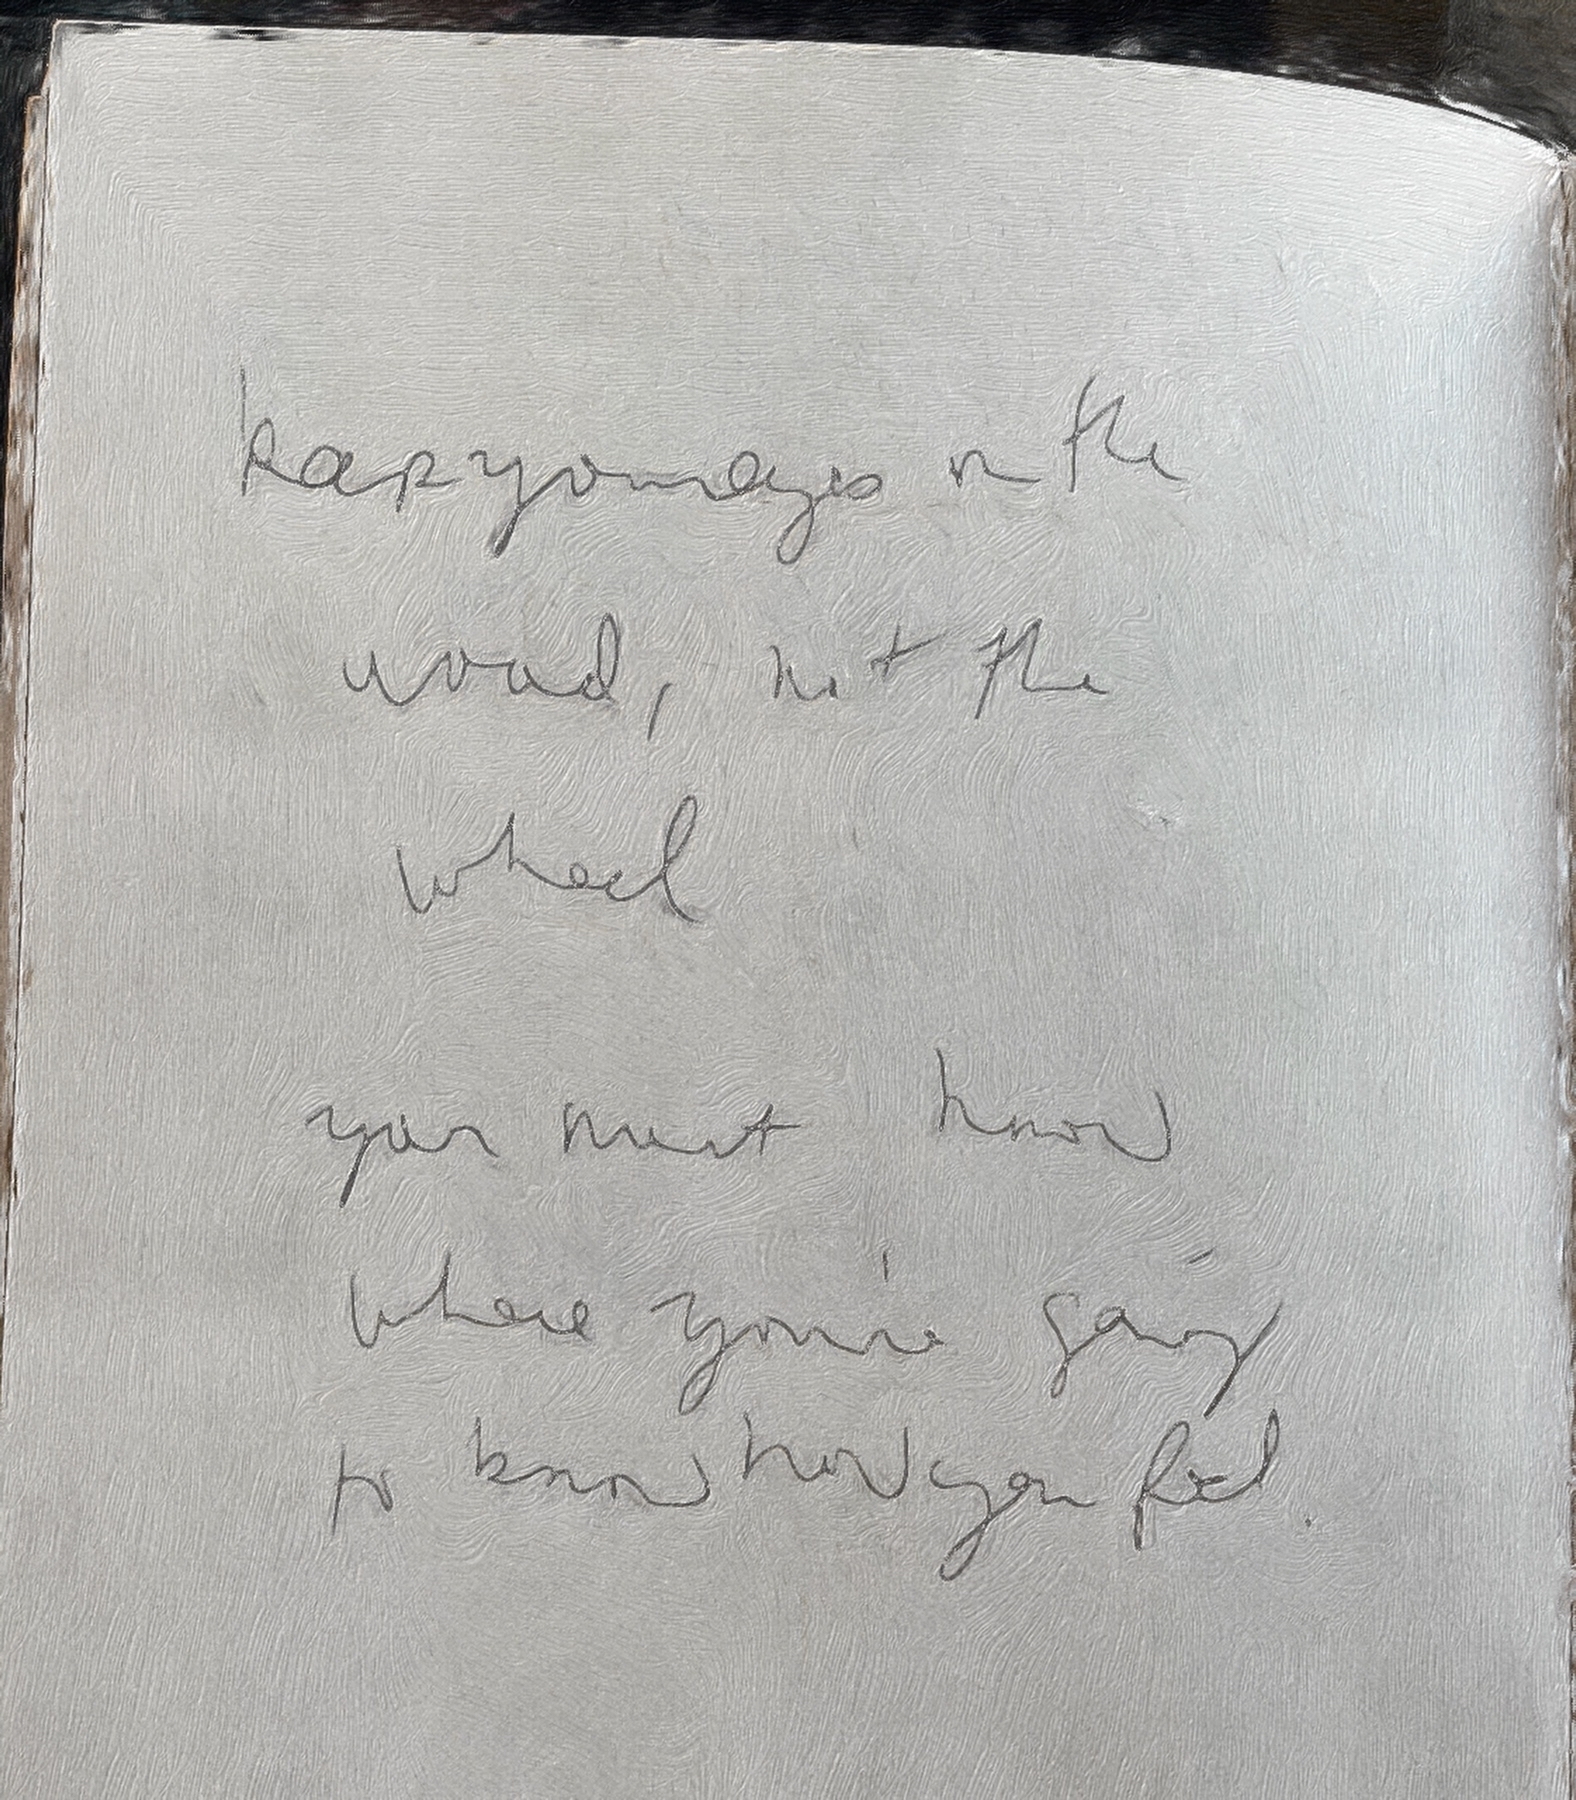 keep your eyes on the
not the
wheel
you must know
where you're going
to know how you feel.